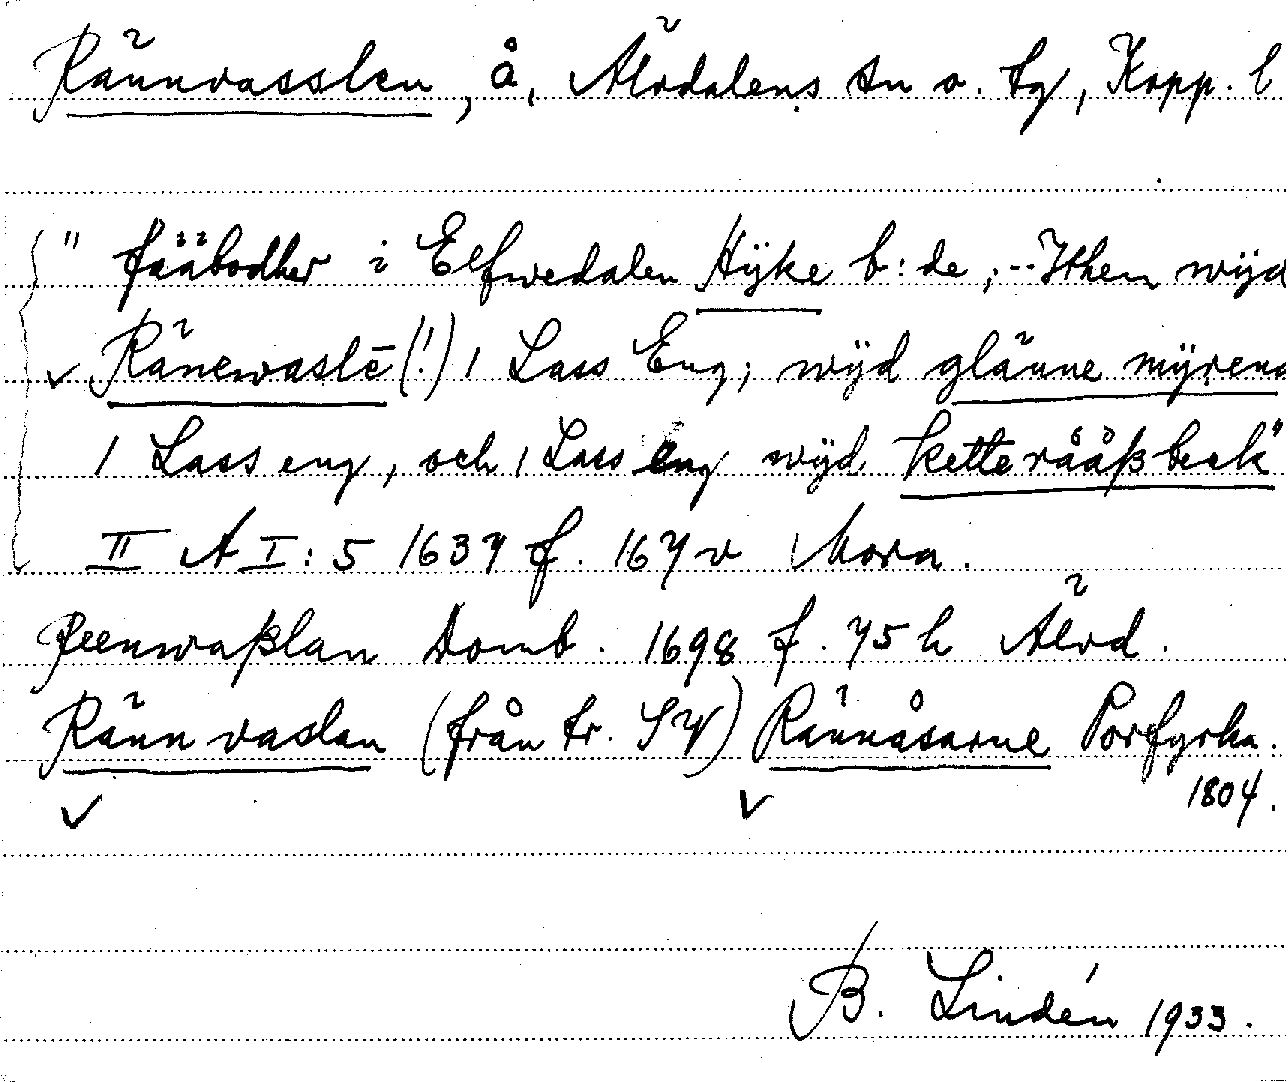 Rännvasslen, å, Älvdalens sn o. tg, Kopp. l
" fääbodher i Elfwedalen Hÿke b:de; -- Ithen wijd
Ränewaslē (!) 1 Lass Eng; wÿd glänne mÿrena
1 Lass eng, och 1 Lass eng wÿd ketterååßbeck"
II A I:5 1637 f. 167 v Mora.
Reenwaßlan Domb. 1698 f. 75 h Älvd.
Rännvaslan (från tr. SV) Rännåsarne Porfyrka.
1804.
B. Lindén 1933.